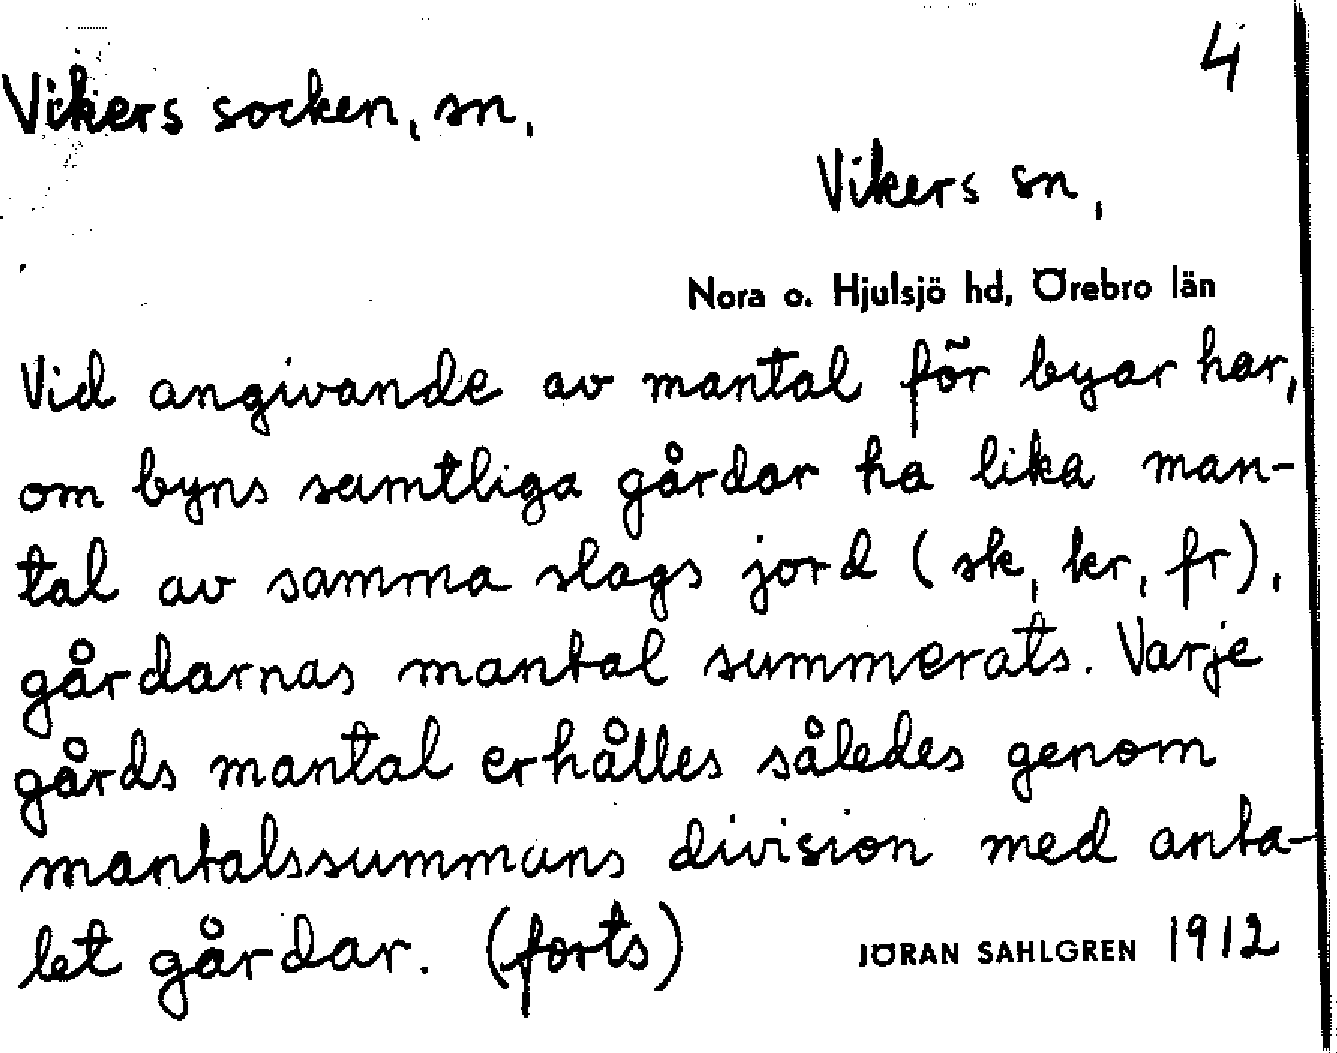 4
Vikers socken, sn,
Vikers sn,
Nora o. Hjulsjö hd, Örebro län
Vid angivande av mantal för byar har,
om byns samtliga gårdar ha lika man-
tal av samma slags jord (sk, kr, fr),
gårdarnas mantal summerats. Varje
gårds mantal erhålles således genom
mantalssummans division med anta-
let gårdar. (forts)
JÖRAN SAHLGREN 1912